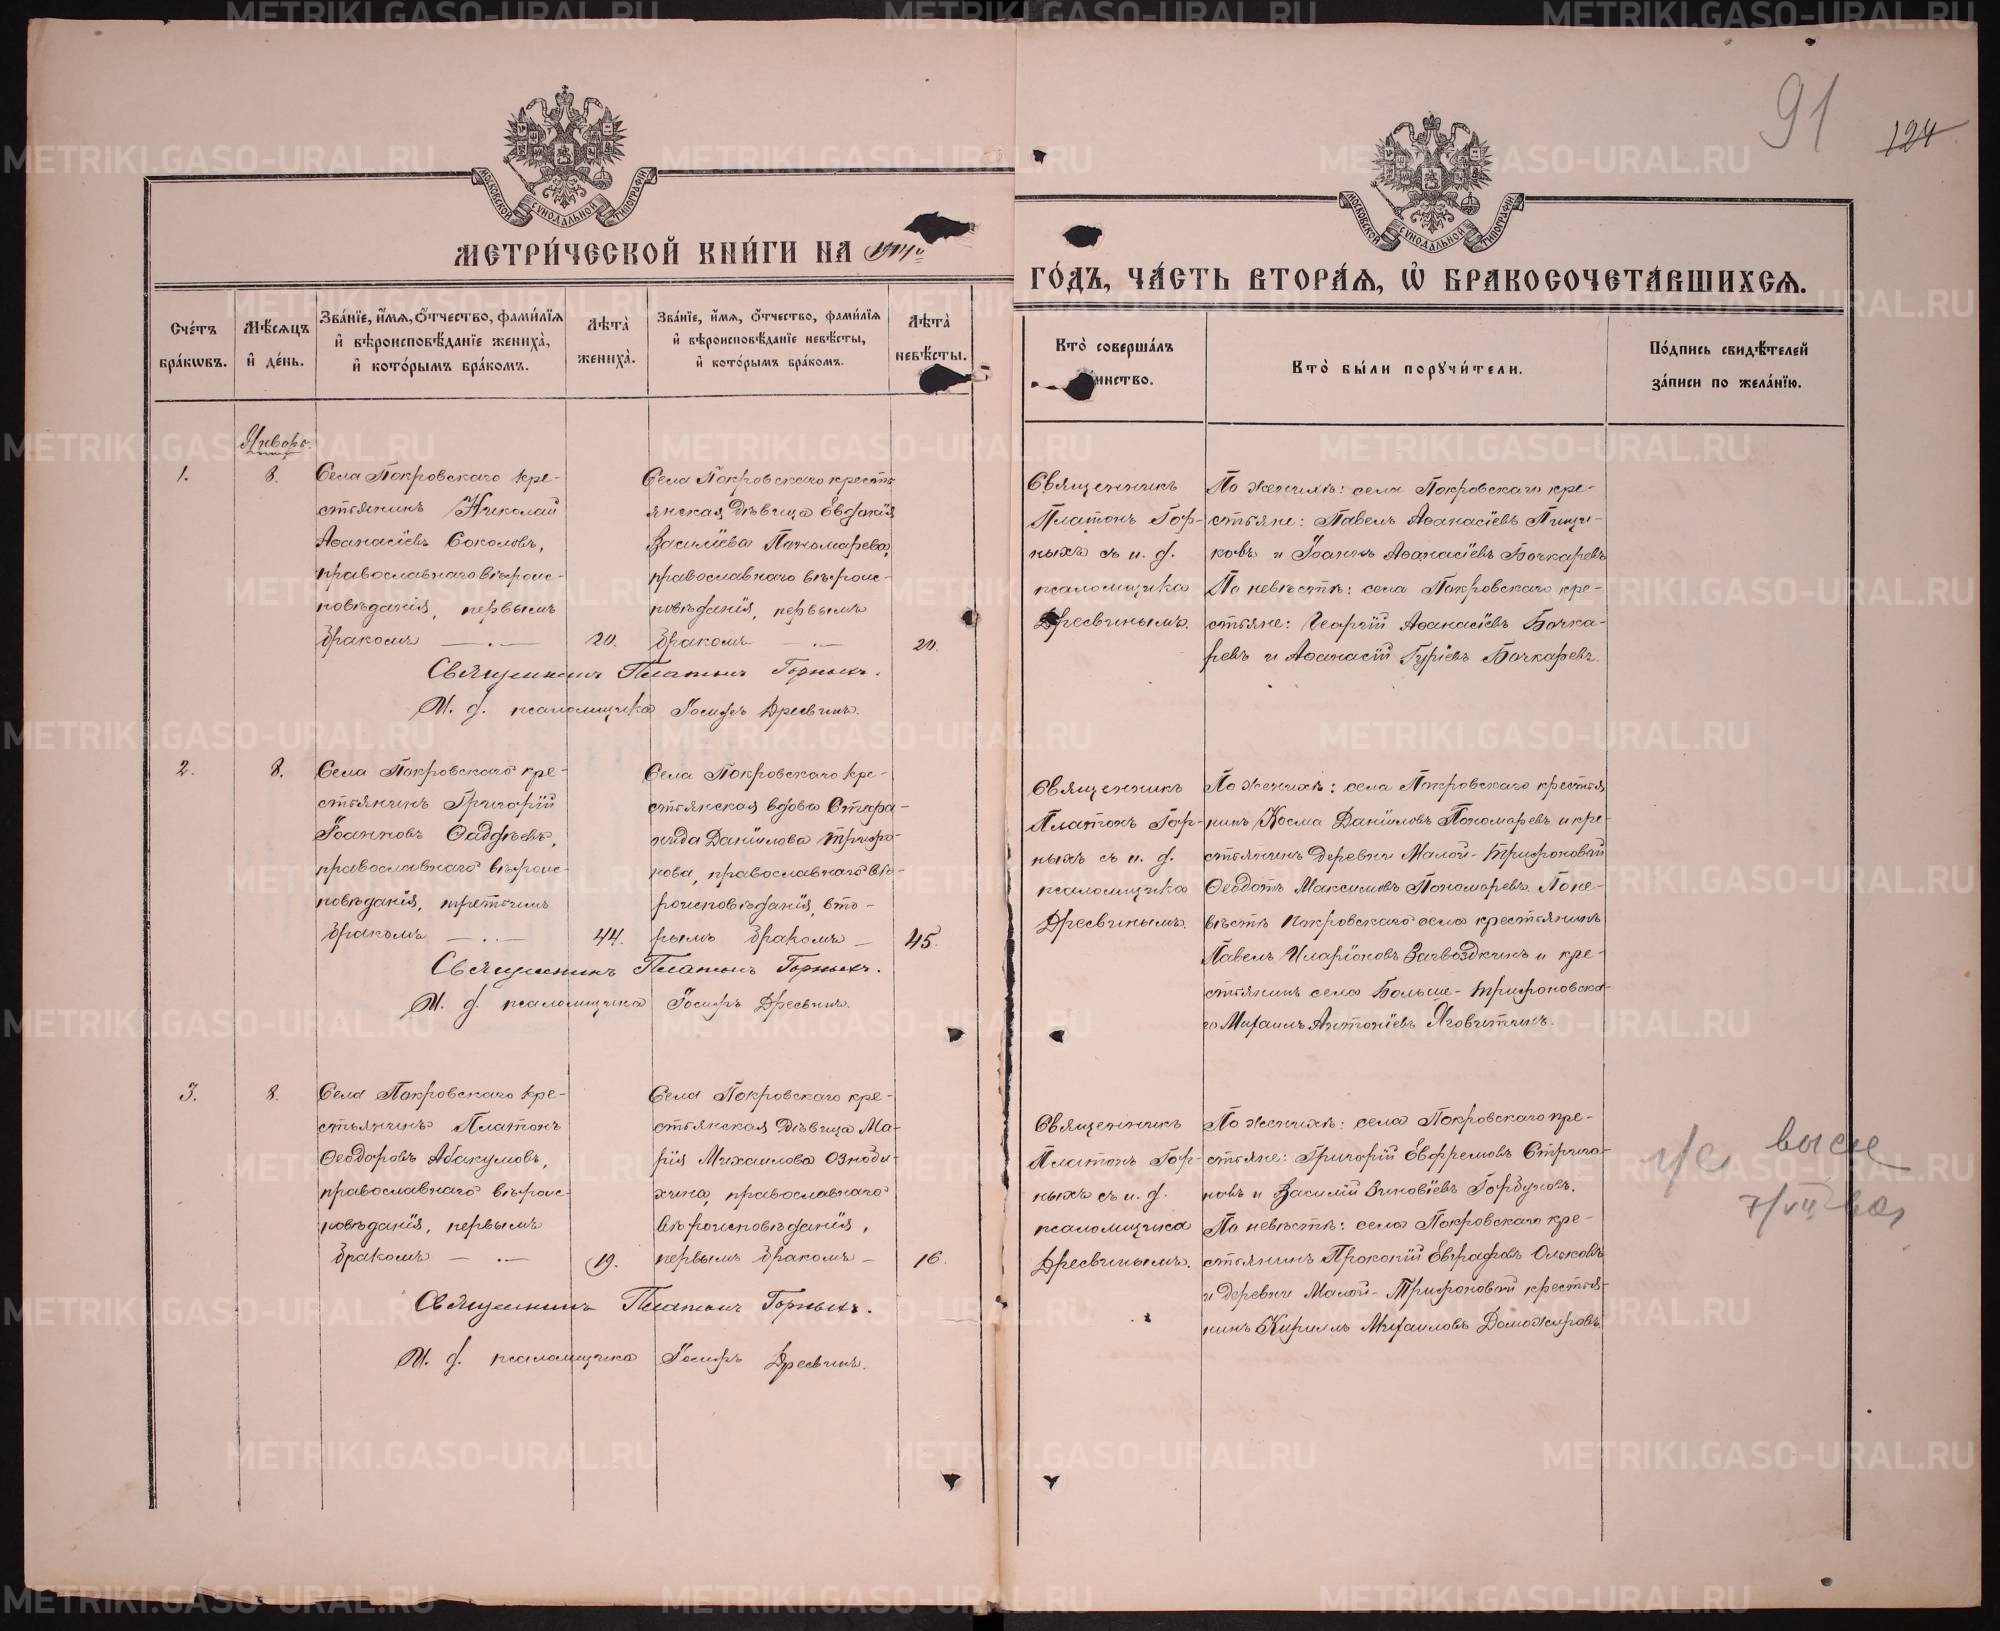 91
124
МОСКОВСКОЙ СѴНОДАЛЬНОЙ ТИПОГРАФІИ
МОСКОВСКОЙ СѴНОДАЛЬНОЙ ТИПОГРАФІИ
МЕТРИ́ЧЕСКОЙ КНИ́ГИ НА 1914й
ГО́ДЪ, ЧА́СТЬ ВТОРА́Ѧ, Ѡ҆ БРАКОСОЧЕТА́ВШИХСѦ.
Сче́тъ бра́кѡвъ.
Мѣ́сѧцъ и҆ де́нь.
Зва́нїе, и҆́мѧ, ѻ҆́тчество, фами́лїѧ и҆ вѣроисповѣ́данїе жениха̀, и҆ кото́рымъ бра́комъ.
Лѣта̀ жениха̀.
Зва́нїе, и҆́мѧ, ѻ҆́тчество, фами́лїѧ и҆ вѣроисповѣ́данїе невѣ́сты, и҆ кото́рымъ бра́комъ.
Лѣта̀ невѣ́сты.
Кто̀ соверша́лъ
инство.
Кто̀ бы́ли порꙋчи́тели.
По́дпись свидѣ́телей за́писи по жела́нїю.
Январь.
1.
8.
Села Покровскаго кре-
стьянинъ Николай
Аѳанасіевъ Соколовъ,
православнаго вѣроис-
повѣданія, первымъ
бракомъ
20.
Села Покровскаго кресть
янская дѣвица Евдокія
Василіева Пономарева,
православнаго вѣроис-
повѣданія, первымъ
бракомъ
20.
Священникъ
Платонъ Гор-
ныхъ съ и. д.
псаломщика
Дресвинымъ.
По женихѣ: села Покровскаго кре-
стьяне: Павелъ Аѳанасіевъ Пищи-
ковъ и Іоаннъ Аѳанасіевъ Бочкаревъ
По невѣстѣ: села Покровскаго кре-
стьяне: Георгій Аѳанасіевъ Бочка-
ревъ и Аѳанасій Гуріевъ Бочкаревъ.
Священникъ Платонъ Горныхъ.
И. д. псаломщика Іосифъ Дресвинъ.
2.
8.
Села Покровскаго кре-
стьянинъ Григорій
Іоанновъ Ѳаддѣевъ,
православнаго вѣроис-
повѣданія, третьимъ
бракомъ
44.
Села Покровскаго кре-
стьянская вдова Стефа-
нида Даніилова Трифо-
нова, православнаго вѣ-
роисповѣданія, вто-
рымъ бракомъ
45.
Священникъ
Платонъ Гор-
ныхъ съ и. д.
псаломщика
Дресвинымъ.
По женихѣ: села Покровскаго крестья
нинъ Косма Даніиловъ Пономаревъ и кре-
стьянинъ деревни Малой-Трифоновой
Ѳеодотъ Максимовъ Пономаревъ. По не-
вѣстѣ Покровскаго села крестьянинъ
Павелъ Иларіоновъ Загвоздкинъ и кре-
стьянинъ села Больше-Трифоновска-
го Михаилъ Антоніевъ Яговитинъ.
Священникъ Платонъ Горныхъ.
И. д. псаломщика Іосифъ Дресвинъ.
3.
8.
Села Покровскаго кре-
стьянинъ Платонъ
Ѳеодоровъ Абакумовъ,
православнаго вѣроис-
повѣданія, первымъ
бракомъ
19.
Села Покровскаго кре-
стьянская дѣвица Ма-
рія Михаилова Ознобы-
хина, православнаго
вѣроисповѣданія,
первымъ бракомъ
16.
Священникъ
Платонъ Гор-
ныхъ съ и. д.
псаломщика
Дресвинымъ.
По женихѣ: села Покровскаго кре-
стьяне: Григорій Евфремовъ Стрига-
новъ и Василій Зиновіевъ Горбуновъ.
По невѣстѣ: села Покровскаго кре-
стьянинъ Прокопій Евграфовъ Ольковъ
и деревни Малой-Трифоновой крестья-
нинъ Кириллъ Михаиловъ Доможировъ.
Священникъ Платонъ Горныхъ.
И. д. псаломщика Іосифъ Дресвинъ.